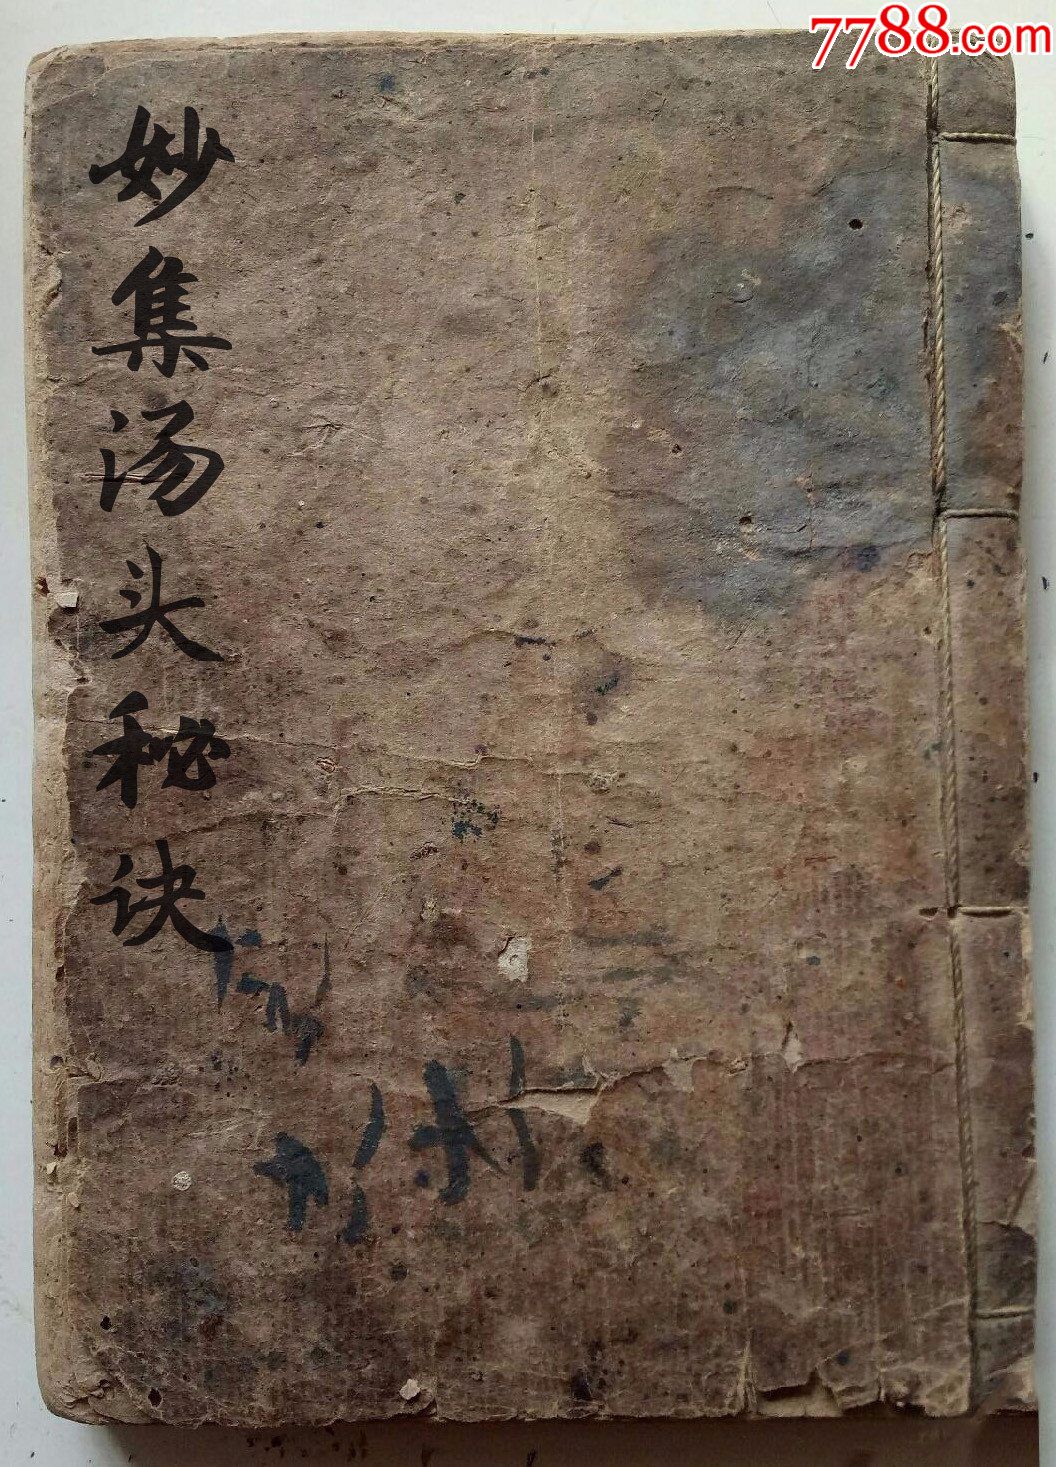 7788.com
妙集汤头秘诀